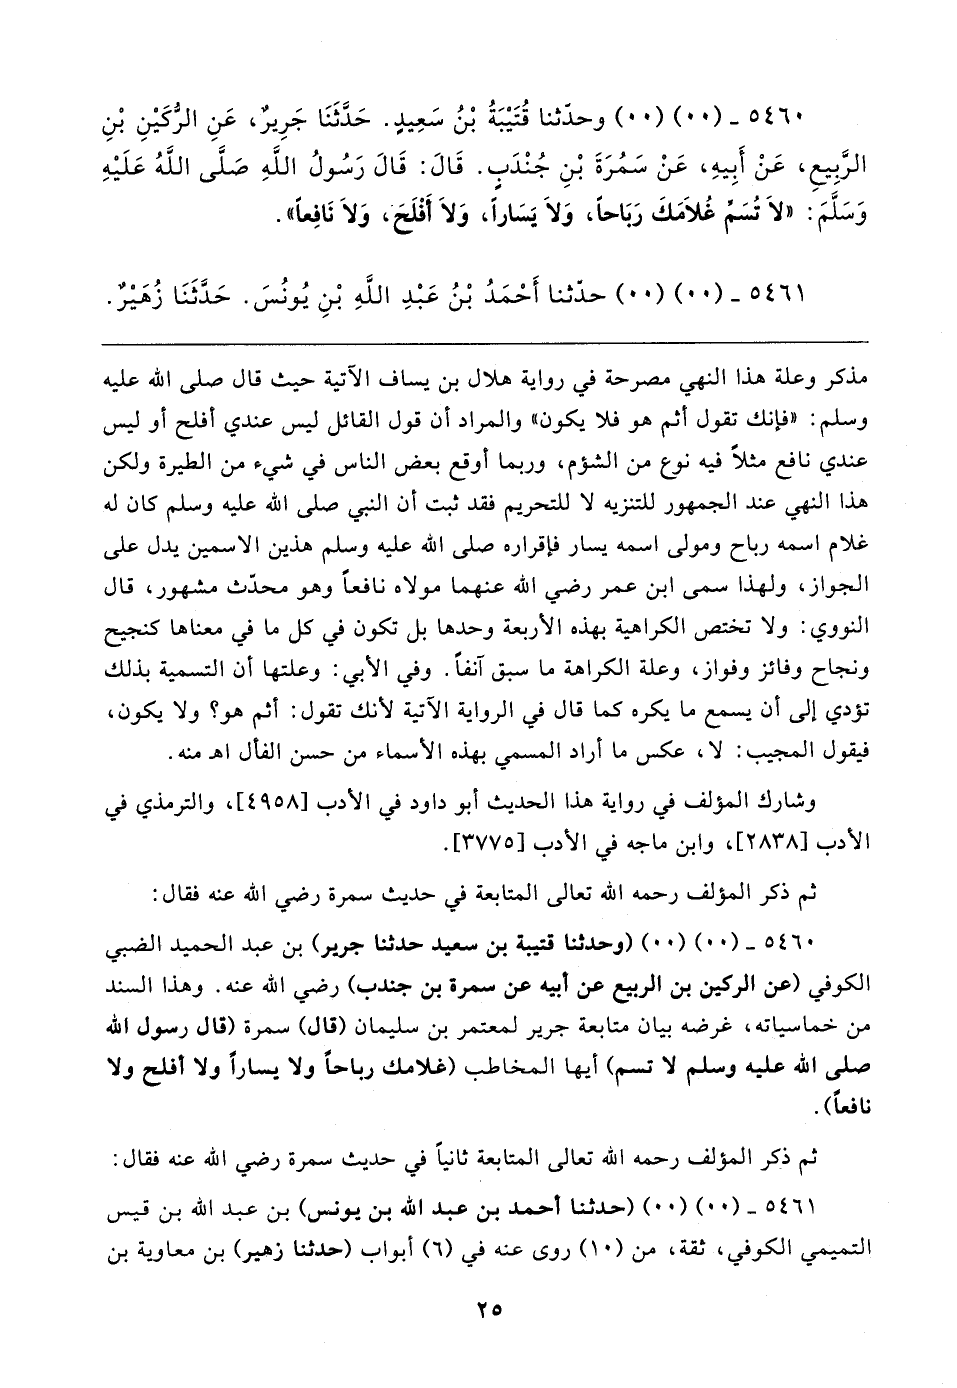 ٥٤٦٠ ـ (٠٠) (٠٠) وحدّثنا قُتَيْبَةُ بْنُ سَعِيدٍ. حَدَّثَنَا جَرِيرٌ، عَنِ الرُّكَيْنِ بْنِ
الرَّبِيعِ، عَنْ أَبِيهِ، عَنْ سَمُرَةَ بْنِ جُنْدَبٍ. قَالَ: قَالَ رَسُولُ اللَّهِ صَلَّى اللَّهُ عَلَيْهِ
وَسَلَّمَ: «لاَ تُسَمِّ غُلاَمَكَ رَبَاحاً، وَلاَ يَسَاراً، وَلاَ أَفْلَحَ، وَلاَ نَافِعاً».
٥٤٦١ ـ (٠٠) (٠٠) حدّثنا أَحْمَدُ بْنُ عَبْدِ اللَّهِ بْنِ يُونُسَ. حَدَّثَنَا زُهَيْرٌ.
مذكر وعلة هذا النهي مصرحة في رواية هلال بن يساف الآتية حيث قال صلى الله عليه
وسلم: «فإنك تقول أثم هو فلا يكون» والمراد أن قول القائل ليس عندي أفلح أو ليس
عندي نافع مثلاً فيه نوع من الشؤم، وربما أوقع بعض الناس في شيء من الطيرة ولكن
هذا النهي عند الجمهور للتنزيه لا للتحريم فقد ثبت أن النبي صلى الله عليه وسلم كان له
غلام اسمه رباح ومولى اسمه يسار فإقراره صلى الله عليه وسلم هذين الاسمين يدل على
الجواز، ولهذا سمى ابن عمر رضي الله عنهما مولاه نافعاً وهو محدّث مشهور، قال
النووي: ولا تختص الكراهية بهذه الأربعة وحدها بل تكون في كل ما في معناها كنجيح
ونجاح وفائز وفواز، وعلة الكراهة ما سبق آنفاً. وفي الأبي: وعلتها أن التسمية بذلك
تؤدي إلى أن يسمع ما يكره كما قال في الرواية الآتية لأنك تقول: أثم هو؟ ولا يكون،
فيقول المجيب: لا، عكس ما أراد المسمي بهذه الأسماء من حسن الفأل اهـ منه.
وشارك المؤلف في رواية هذا الحديث أبو داود في الأدب [٤٩٥٨]، والترمذي في
الأدب [٢٨٣٨]، وابن ماجه في الأدب [٣٧٧٥].
ثم ذكر المؤلف رحمه الله تعالى المتابعة في حديث سمرة رضي الله عنه فقال:
٥٤٦٠ ـ (٠٠) (٠٠) (وحدثنا قتيبة بن سعيد حدثنا جرير) بن عبد الحميد الضبي
الكوفي (عن الركين بن الربيع عن أبيه عن سمرة بن جندب) رضي الله عنه. وهذا السند
من خماسياته، غرضه بيان متابعة جرير لمعتمر بن سليمان (قال) سمرة (قال رسول الله
صلى الله عليه وسلم لا تسم) أيها المخاطب (غلامك رباحاً ولا يساراً ولا أفلح ولا
نافعاً).
ثم ذكر المؤلف رحمه الله تعالى المتابعة ثانياً في حديث سمرة رضي الله عنه فقال:
٥٤٦١ ـ (٠٠) (٠٠) (حدثنا أحمد بن عبد الله بن يونس) بن عبد الله بن قيس
التميمي الكوفي، ثقة، من (١٠) روى عنه في (٦) أبواب (حدثنا زهير) بن معاوية بن
٢٥